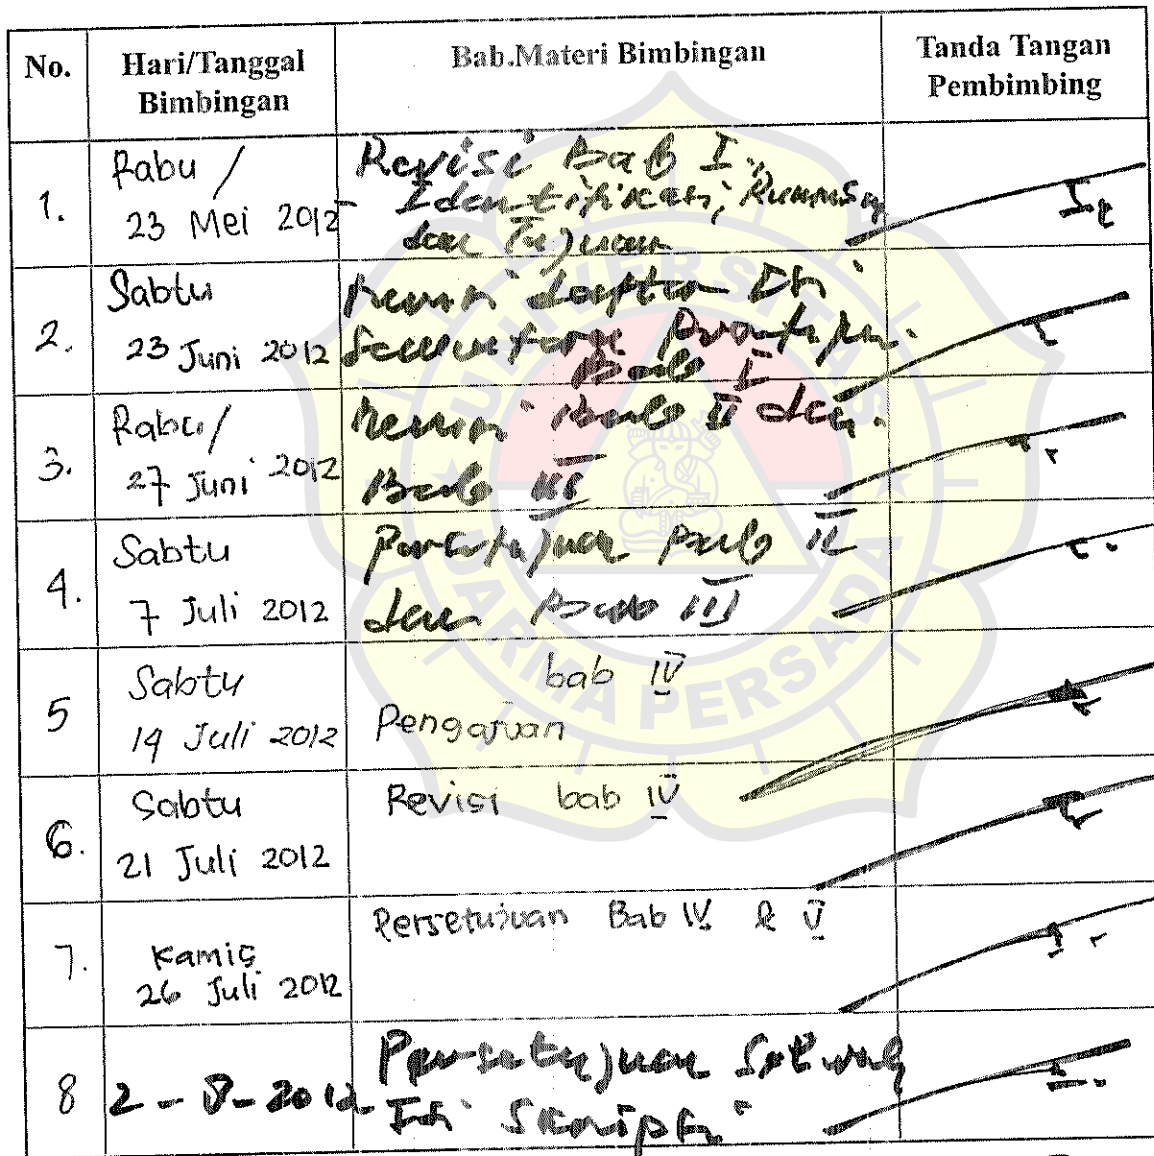 No.
Hari/Tanggal
Bimbingan
Bab.Materi Bimbingan
Tanda Tangan
Pembimbing
1.
Rabu /
23 Mei 2012
Revisi Bab I.
- Identifikasi, Rumusan
dan Tujuan
2.
Sabtu
23 Juni 2012
Revisi daftar Isi
Sementara
Bab I
3.
Rabu/
27 Juni 2012
Revisi Bab II dan
Bab III
4.
Sabtu
7 Juli 2012
Persetujuan Bab II
dan Bab III
5
Sabtu
14 Juli 2012
bab IV
Pengajuan
6.
Sabtu
21 Juli 2012
Revisi bab IV
7.
Kamis
26 Juli 2012
Persetujuan Bab IV & V
8
2-8-2012
Persetujuan Seluruh
Isi Skripsi
UNIVERSITAS
DARMA PERSADA